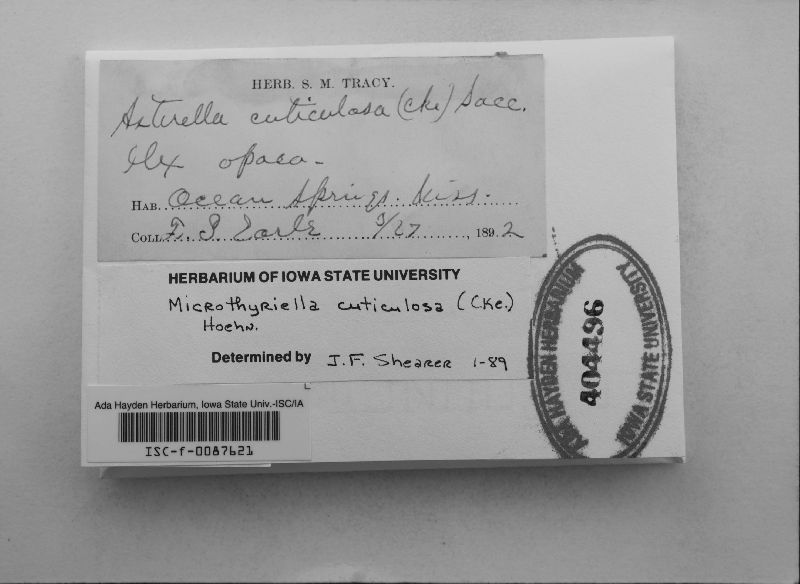 HERB. S. M. TRACY.
Asterella cuticulosa (Cke) Sacc.
Ilex opaca -
HAB. Ocean Springs. Miss.
COLL. F. S. Earle /27, 1892
HERBARIUM OF IOWA STATE UNIVERSITY
Microthyriella cuticulosa (Cke.)
Hoehn.
Determined by J.F. Shearer 1-89
Ada Hayden Herbarium, Iowa State Univ.-ISC/IA
ISC-f-0087621
ADA HAYDEN HERBARIUM
404496
IOWA STATE UNIVERSITY